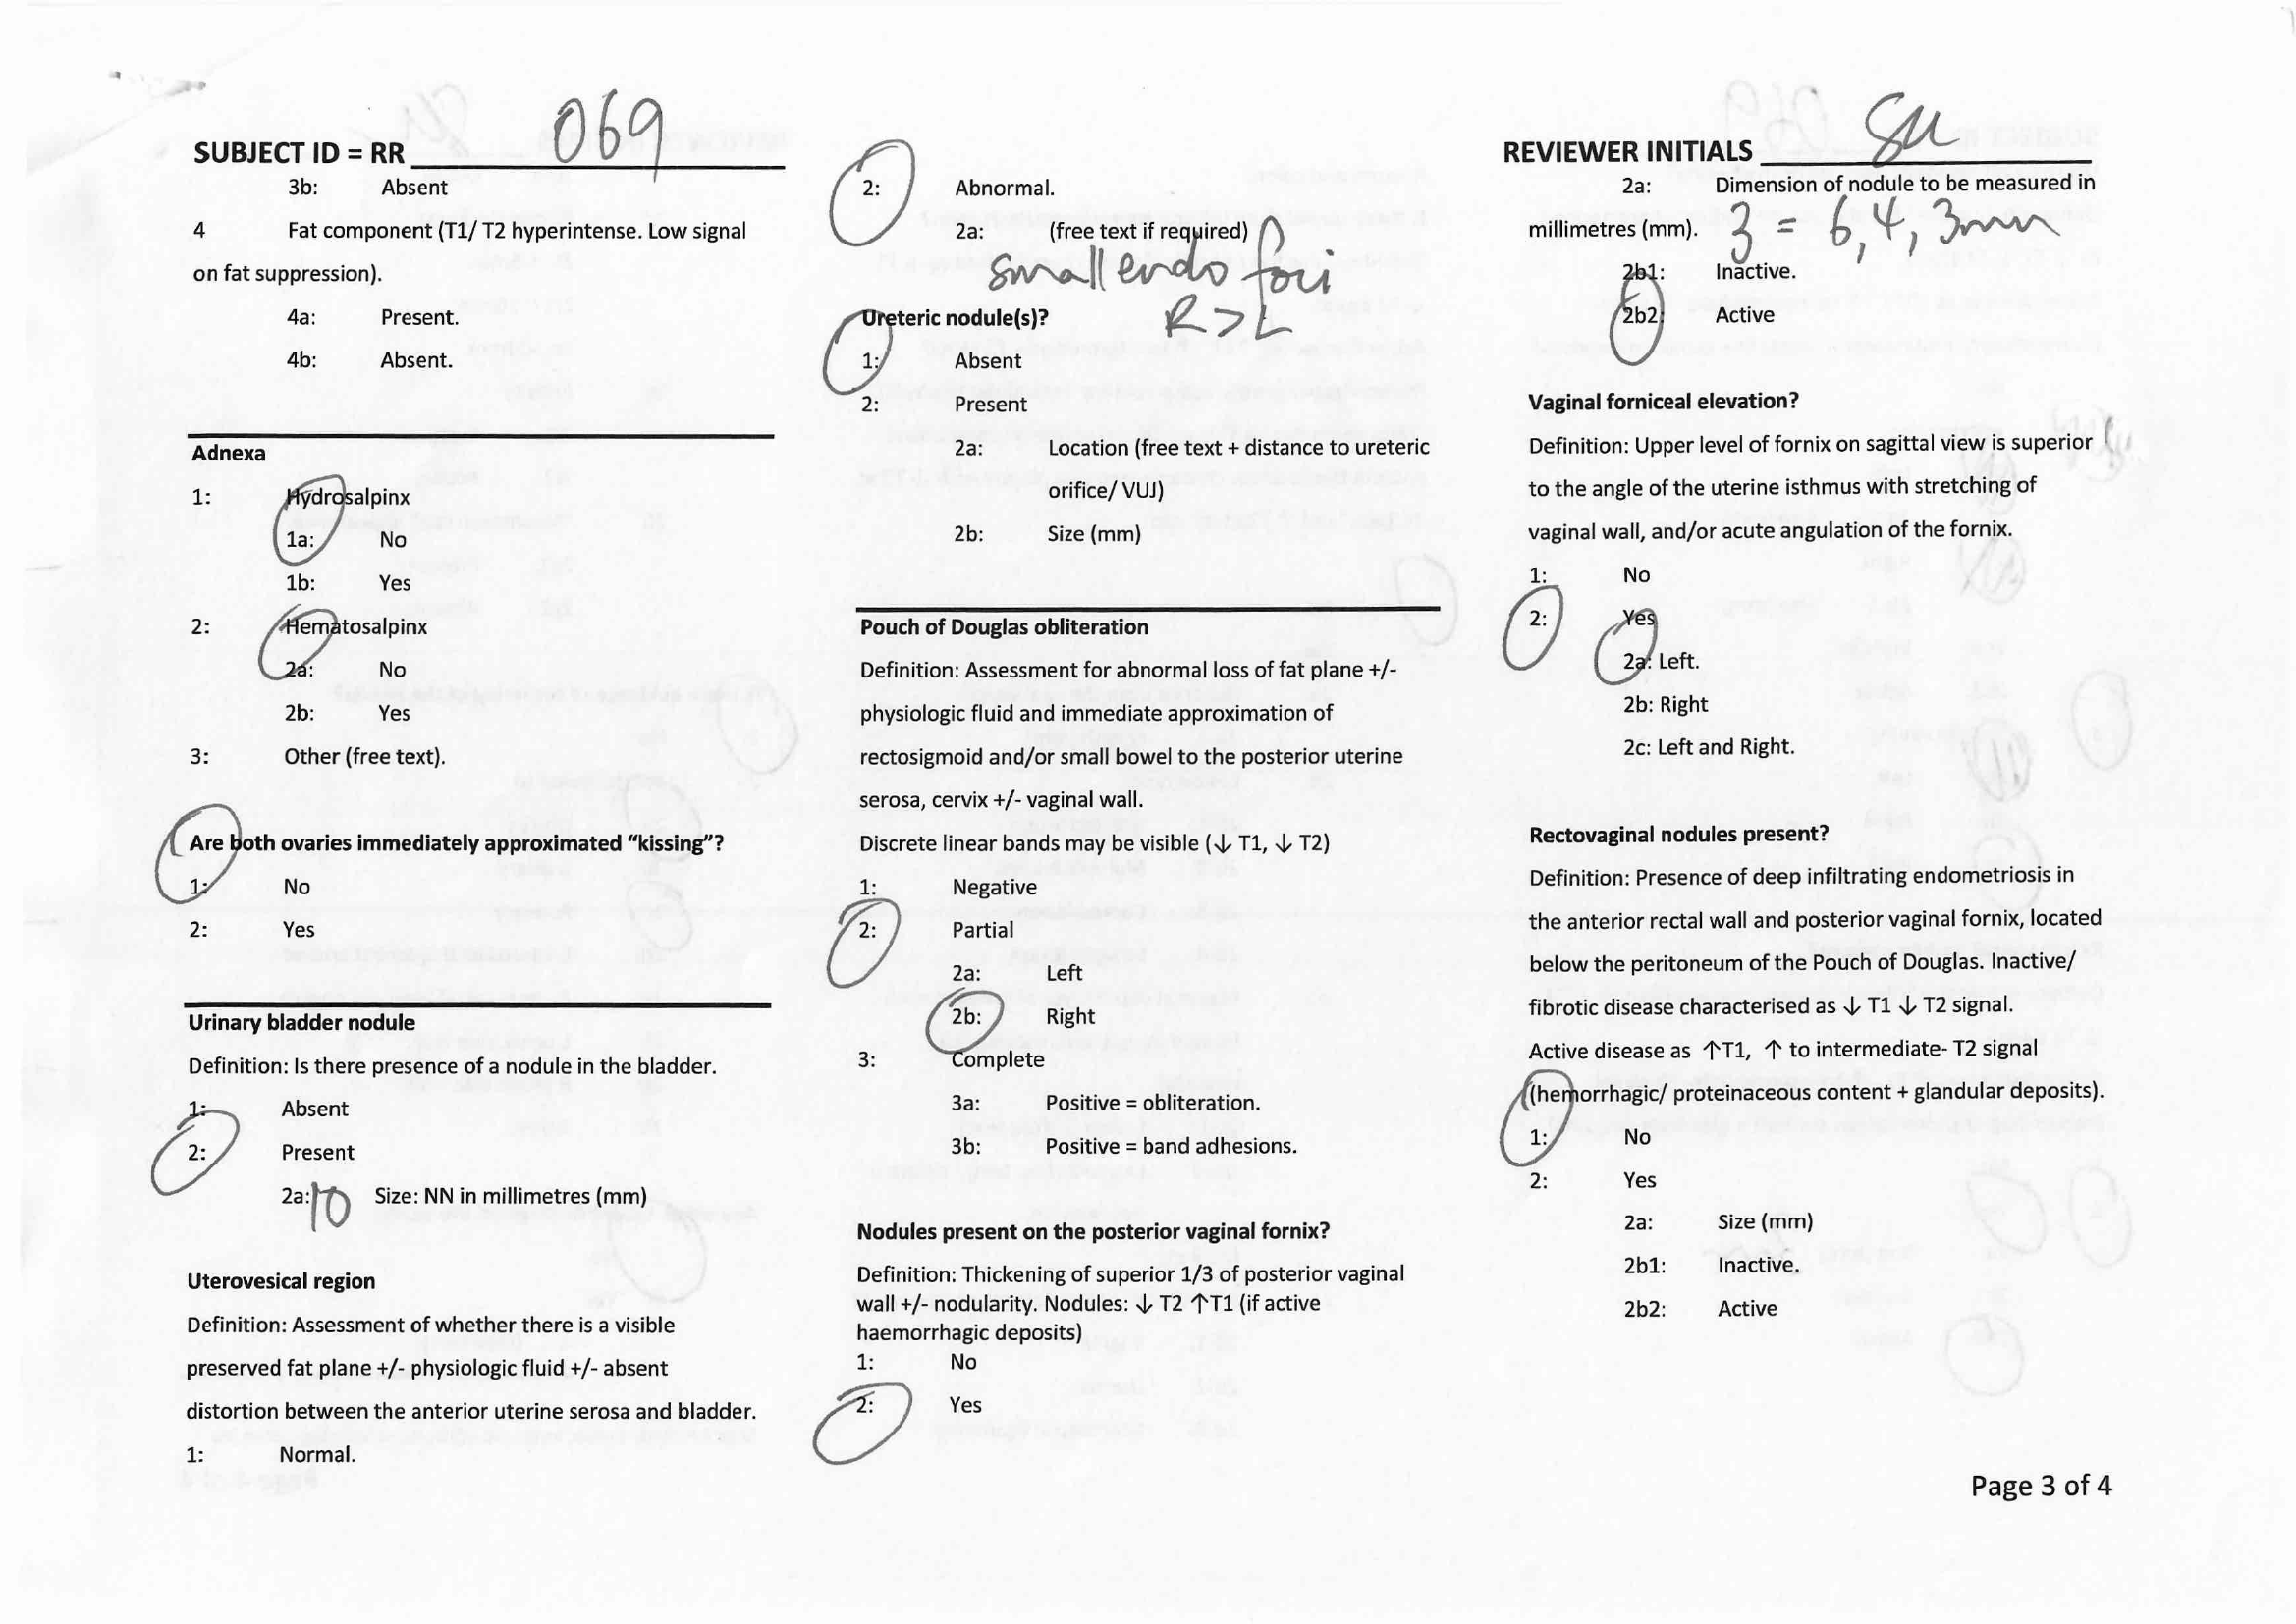 SUBJECT ID = RR 069
3b: Absent
4 Fat component (T1/ T2 hyperintense. Low signal
on fat suppression).
4a: Present.
4b: Absent.
Adnexa
1: Hydrosalpinx
1a: No
1b: Yes
2: Hematosalpinx
2a: No
2b: Yes
3: Other (free text).
Are both ovaries immediately approximated “kissing”?
1: No
2: Yes
Urinary bladder nodule
Definition: Is there presence of a nodule in the bladder.
1: Absent
2: Present
2a: 10 Size: NN in millimetres (mm)
Uterovesical region
Definition: Assessment of whether there is a visible
preserved fat plane +/- physiologic fluid +/- absent
distortion between the anterior uterine serosa and bladder.
1: Normal.
2: Abnormal.
2a: (free text if required)
small endo foci
R > L
Ureteric nodule(s)?
1: Absent
2: Present
2a: Location (free text + distance to ureteric
orifice/ VUJ)
2b: Size (mm)
Pouch of Douglas obliteration
Definition: Assessment for abnormal loss of fat plane +/-
physiologic fluid and immediate approximation of
rectosigmoid and/or small bowel to the posterior uterine
serosa, cervix +/- vaginal wall.
Discrete linear bands may be visible (↓ T1, ↓ T2)
1: Negative
2: Partial
2a: Left
2b: Right
3: Complete
3a: Positive = obliteration.
3b: Positive = band adhesions.
Nodules present on the posterior vaginal fornix?
Definition: Thickening of superior 1/3 of posterior vaginal
wall +/- nodularity. Nodules: ↓ T2 ↑T1 (if active
haemorrhagic deposits)
1: No
2: Yes
REVIEWER INITIALS SU
2a: Dimension of nodule to be measured in
millimetres (mm). 3 = 6, 4, 3mm
2b1: Inactive.
2b2: Active
Vaginal forniceal elevation?
Definition: Upper level of fornix on sagittal view is superior
to the angle of the uterine isthmus with stretching of
vaginal wall, and/or acute angulation of the fornix.
1: No
2: Yes
2a: Left.
2b: Right
2c: Left and Right.
Rectovaginal nodules present?
Definition: Presence of deep infiltrating endometriosis in
the anterior rectal wall and posterior vaginal fornix, located
below the peritoneum of the Pouch of Douglas. Inactive/
fibrotic disease characterised as ↓ T1 ↓ T2 signal.
Active disease as ↑T1, ↑ to intermediate- T2 signal
(hemorrhagic/ proteinaceous content + glandular deposits).
1: No
2: Yes
2a: Size (mm)
2b1: Inactive.
2b2: Active
Page 3 of 4